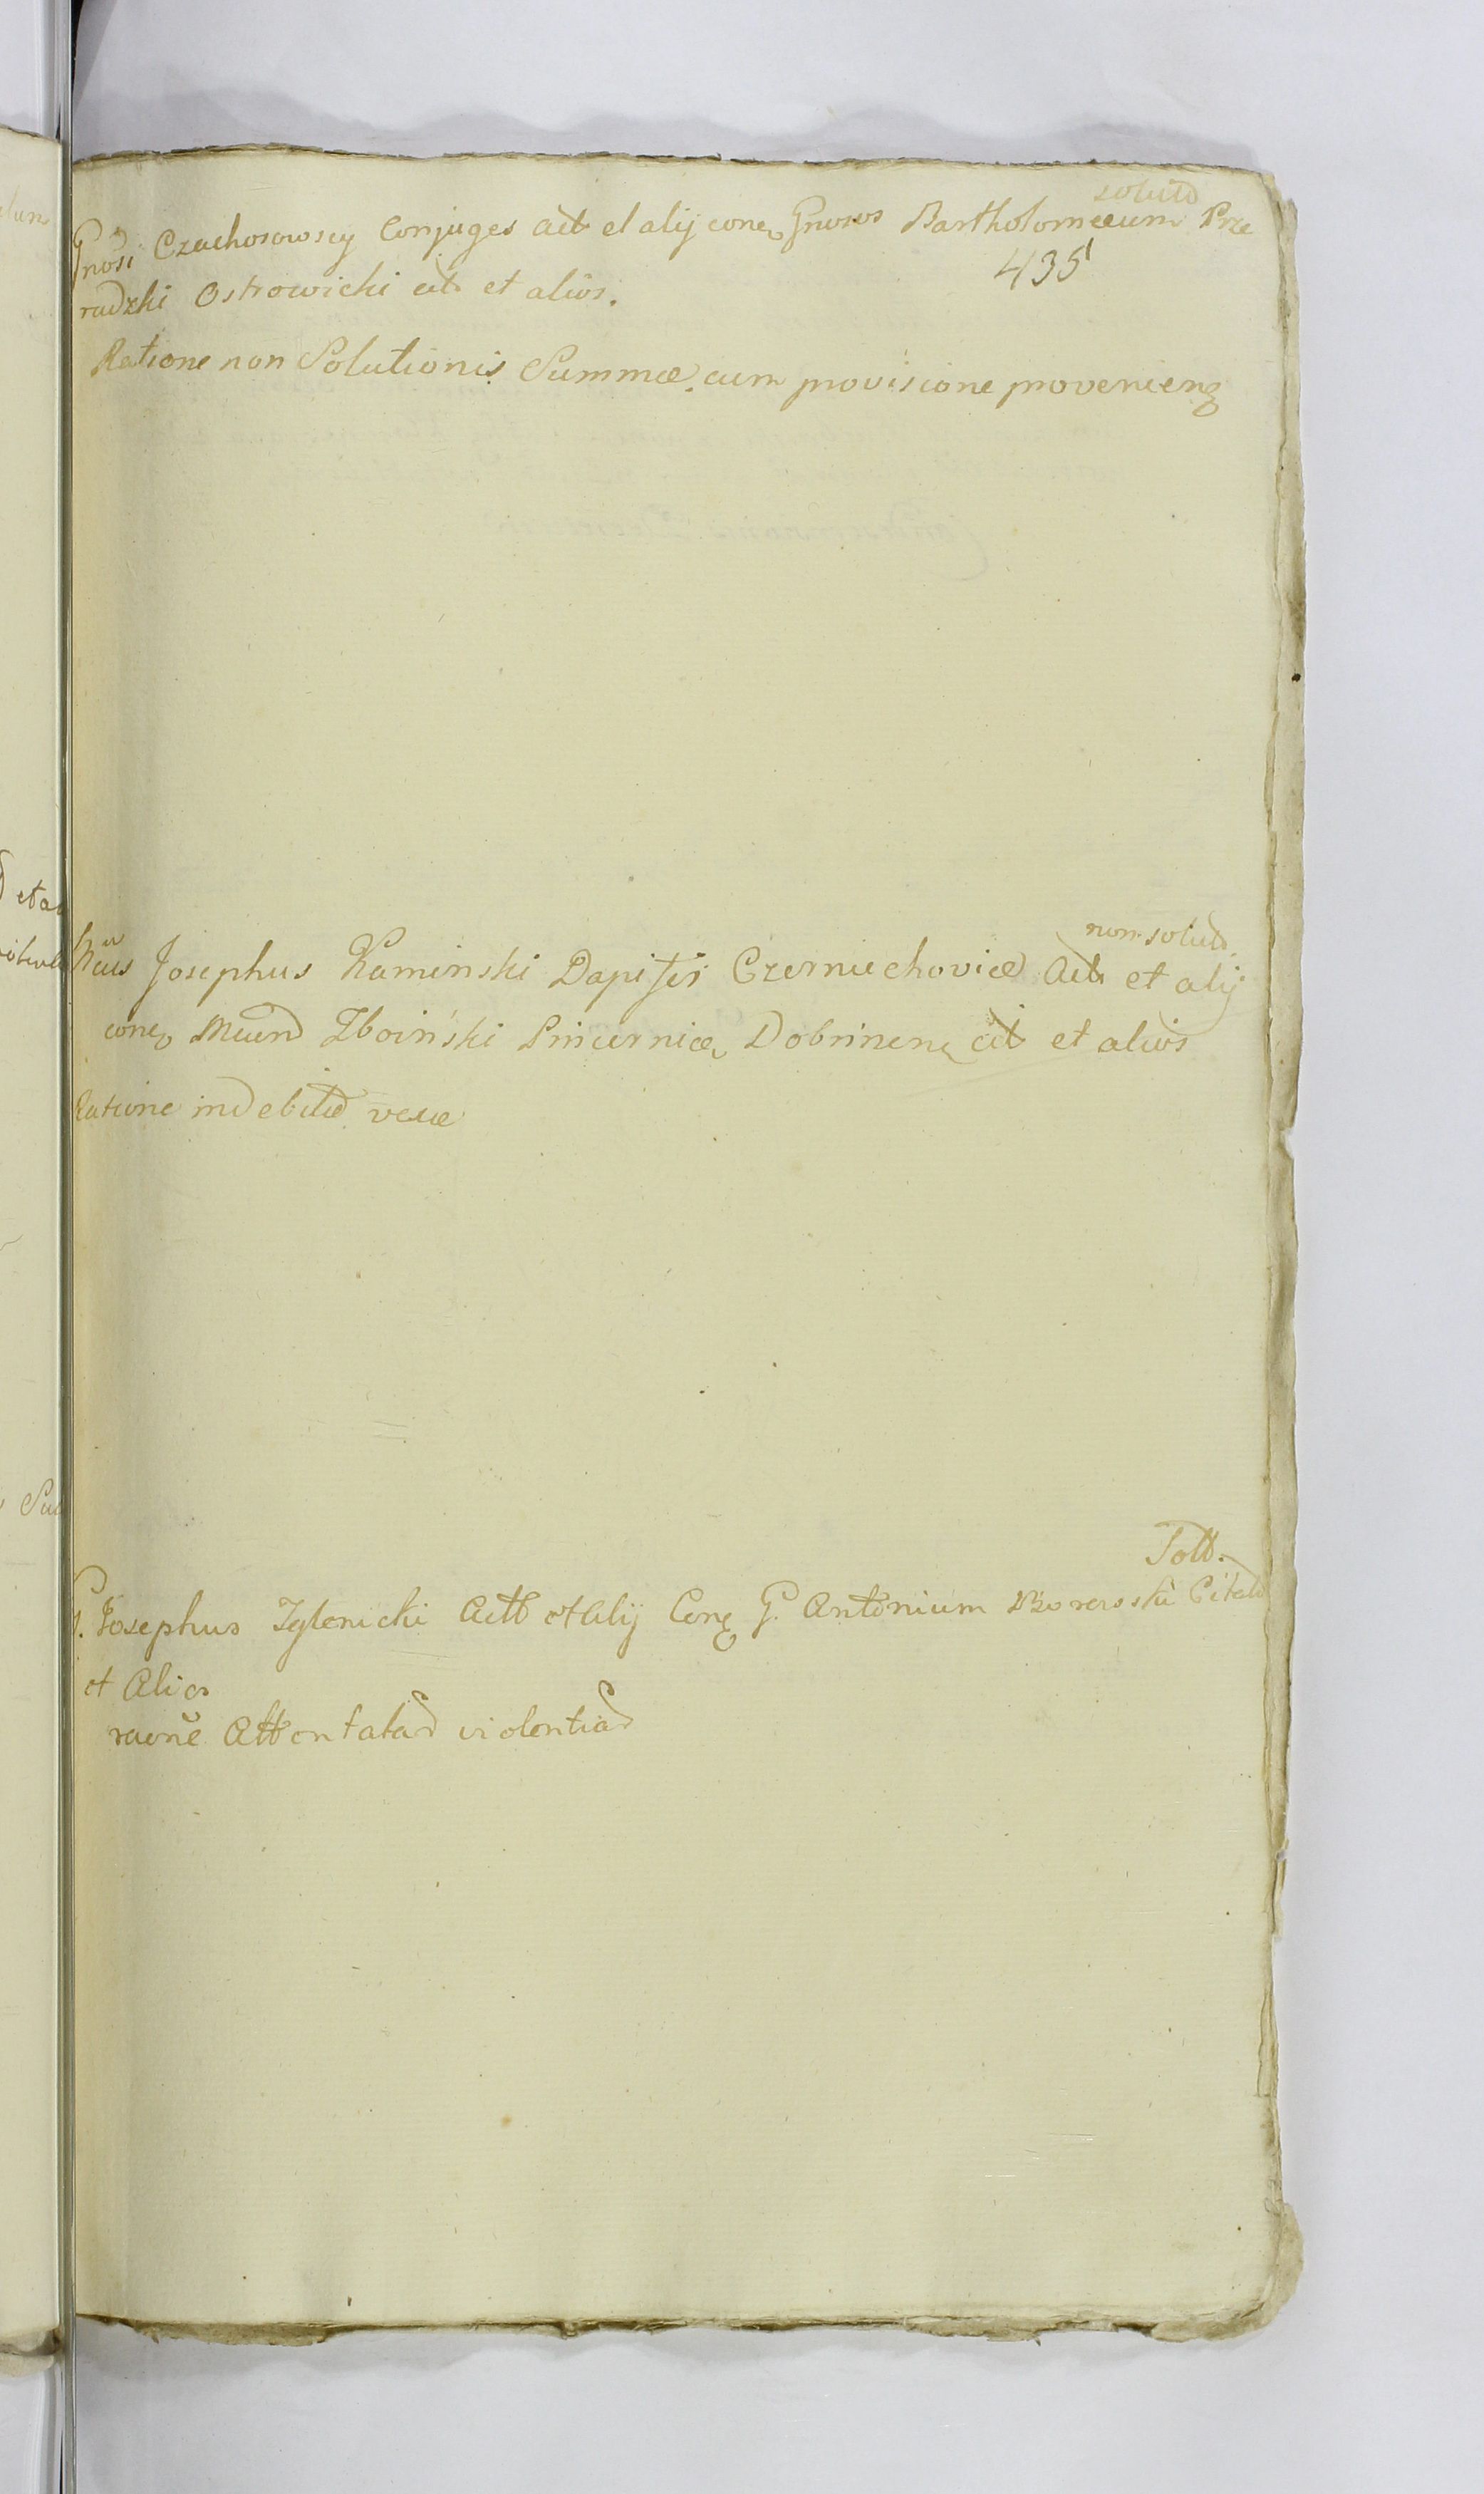 solutd
Gnosi Czachorowscy Conjuges act et alij conq Gnosos Bartholomeum Prze
435
radzki Ostrowicki cit et alios.
Ratione non Solutionis Summæ cum provisione provenienq
non solutd
Josephus Kaminski Dapifer Czerniechoviæ Act et alij
conq Mcum Zboiński Pincerniæ Dobrinenq cit et alios
Ratione indebitæ vexæ
Solt.
G. Josephus Zglenicki Actt et Alij Conq G. Antonium Citatd
et Alios
raone Attentatad violentiad